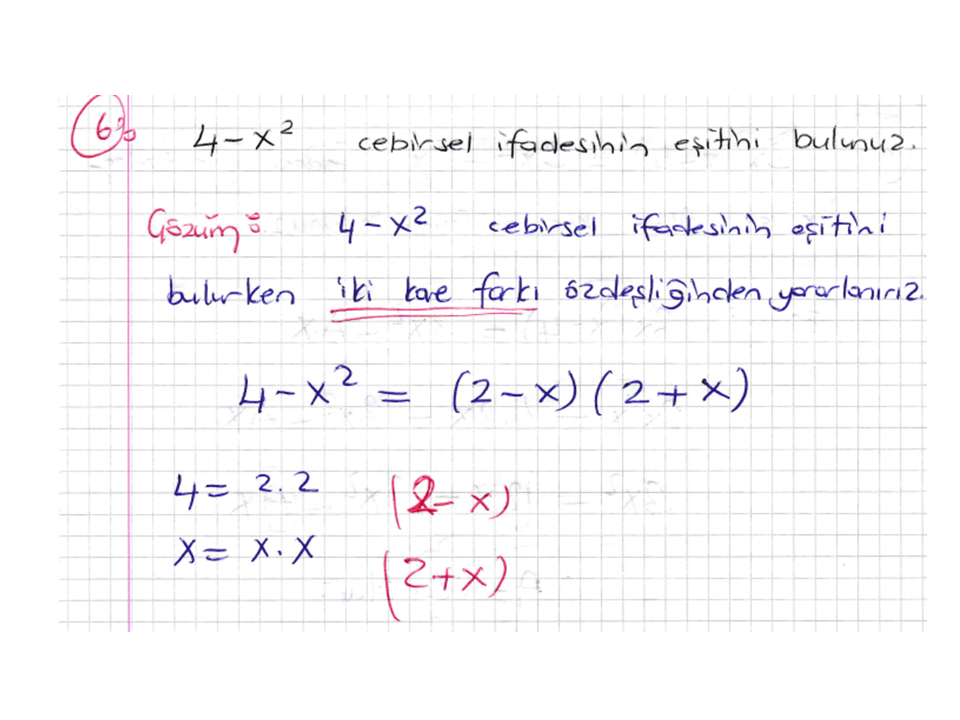 6) 4-x² cebirsel ifadesinin eşitini bulunuz.
Çözüm: 4-x² cebirsel ifadesinin eşitini
bulurken iki kare farkı özdeşliğinden yararlanırız.
4-x² = (2-x)(2+x)
4 = 2.2 (2-x)
x = x.x (2+x)